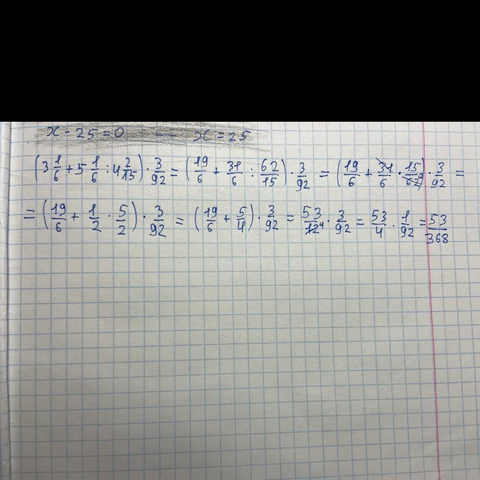 x - 25 = 0 x = 25
(3 1/6 + 5 1/6 : 4 2/15) · 3/92 = (19/6 + 31/6 : 62/15) · 3/92 = (19/6 + 31/6 · 15/62) · 3/92 =
= (19/6 + 1/2 · 5/2) · 3/92 = (19/6 + 5/4) · 3/92 = 53/12 · 3/92 = 53/4 · 1/92 = 53/368